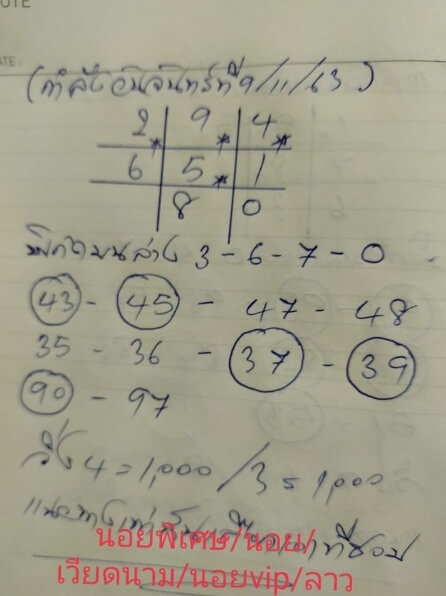 (กำลังวันจันทร์ที่ 9/11/63)
2 9 4
6 5 1
8 0
บนล่าง 3-6-7-0
43 - 45 - 47 - 48
35 - 36 - 37 - 39
90 - 97
วิ่ง 4 = 1,000 / 3 = 1,000
นอยพิเศษ/นอย/
เวียดนาม/นอยvip/ลาว